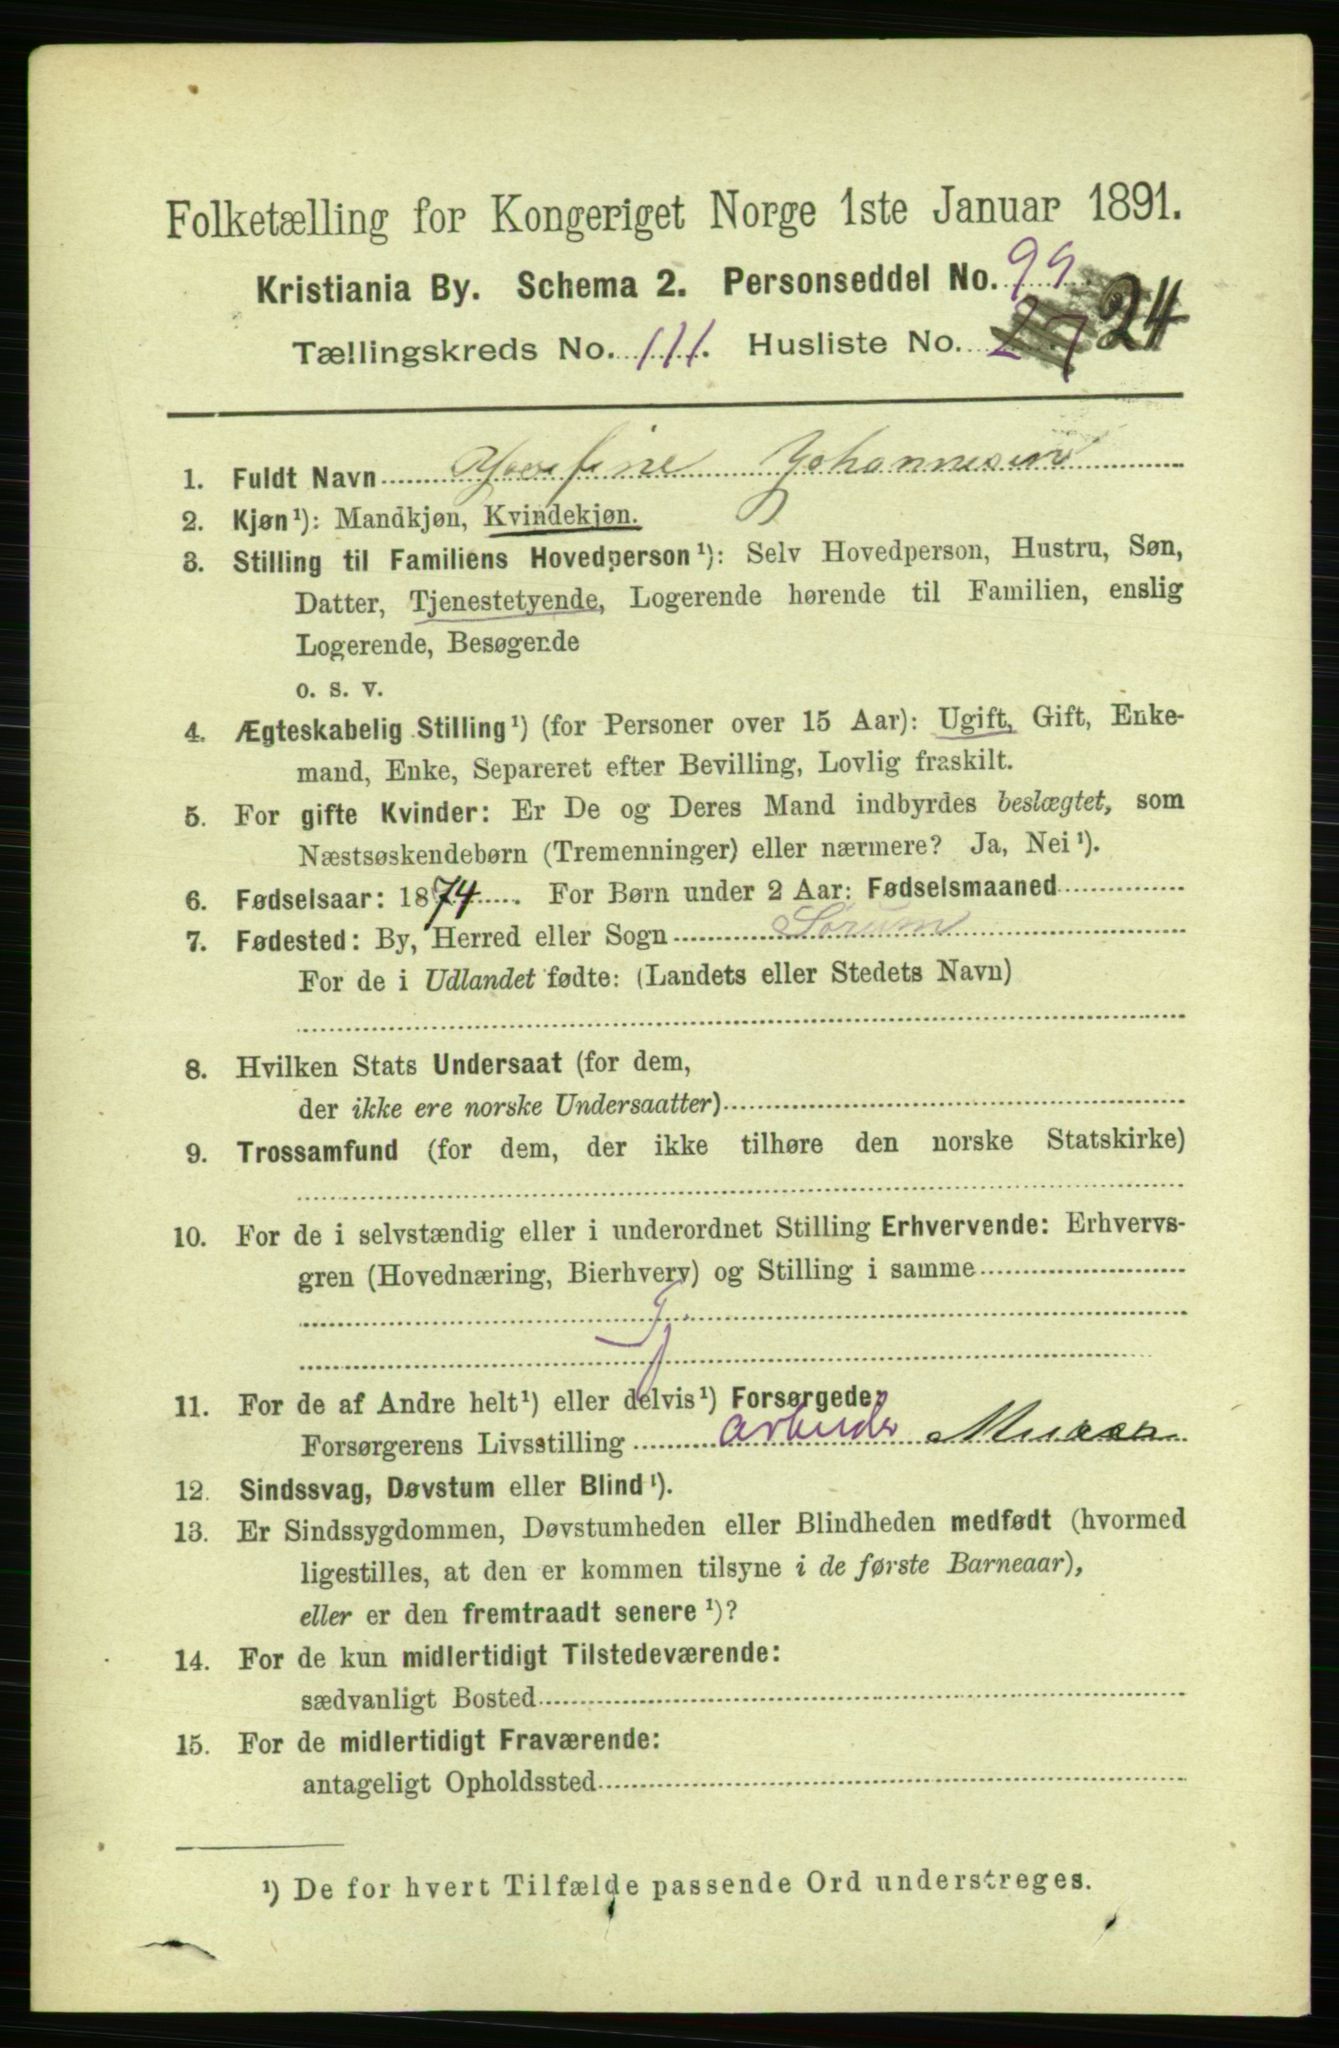 Folketælling for Kongeriget Norge 1ste Januar 1891.
Kristiania By. Schema 2. Personseddel No. 99
Tællingskreds No. 111. Husliste No. 27 24
1. Fuldt Navn Josefine Johannesen
2. Kjøn¹): Mandkjøn, Kvindekjøn.
3. Stilling til Familiens Hovedperson¹): Selv Hovedperson, Hustru, Søn,
Datter, Tjenestetyende, Logerende hørende til Familien, enslig
Logerende, Besøgende
o. s. v.
4. Ægteskabelig Stilling¹) (for Personer over 15 Aar): Ugift, Gift, Enke-
mand, Enke, Separeret efter Bevilling, Lovlig fraskilt.
5. For gifte Kvinder: Er De og Deres Mand indbyrdes beslægtet, som
Næstsøskendebørn (Tremenninger) eller nærmere? Ja, Nei¹).
6. Fødselsaar: 1874. For Børn under 2 Aar: Fødselsmaaned
7. Fødested: By, Herred eller Sogn Sørum
For de i Udlandet fødte: (Landets eller Stedets Navn)
8. Hvilken Stats Undersaat (for dem,
der ikke ere norske Undersaatter)
9. Trossamfund (for dem, der ikke tilhøre den norske Statskirke)
10. For de i selvstændig eller i underordnet Stilling Erhvervende: Erhvervs-
gren (Hovednæring, Bierhverv) og Stilling i samme
11. For de af Andre helt¹) eller delvis¹) Forsørgede:
Forsørgerens Livsstilling arbeider
12. Sindssvag, Døvstum eller Blind¹).
13. Er Sindssygdommen, Døvstumheden eller Blindheden medfødt (hvormed
ligestilles, at den er kommen tilsyne i de første Barneaar),
eller er den fremtraadt senere¹)?
14. For de kun midlertidigt Tilstedeværende:
sædvanligt Bosted
15. For de midlertidigt Fraværende:
antageligt Opholdssted
¹) De for hvert Tilfælde passende Ord understreges.